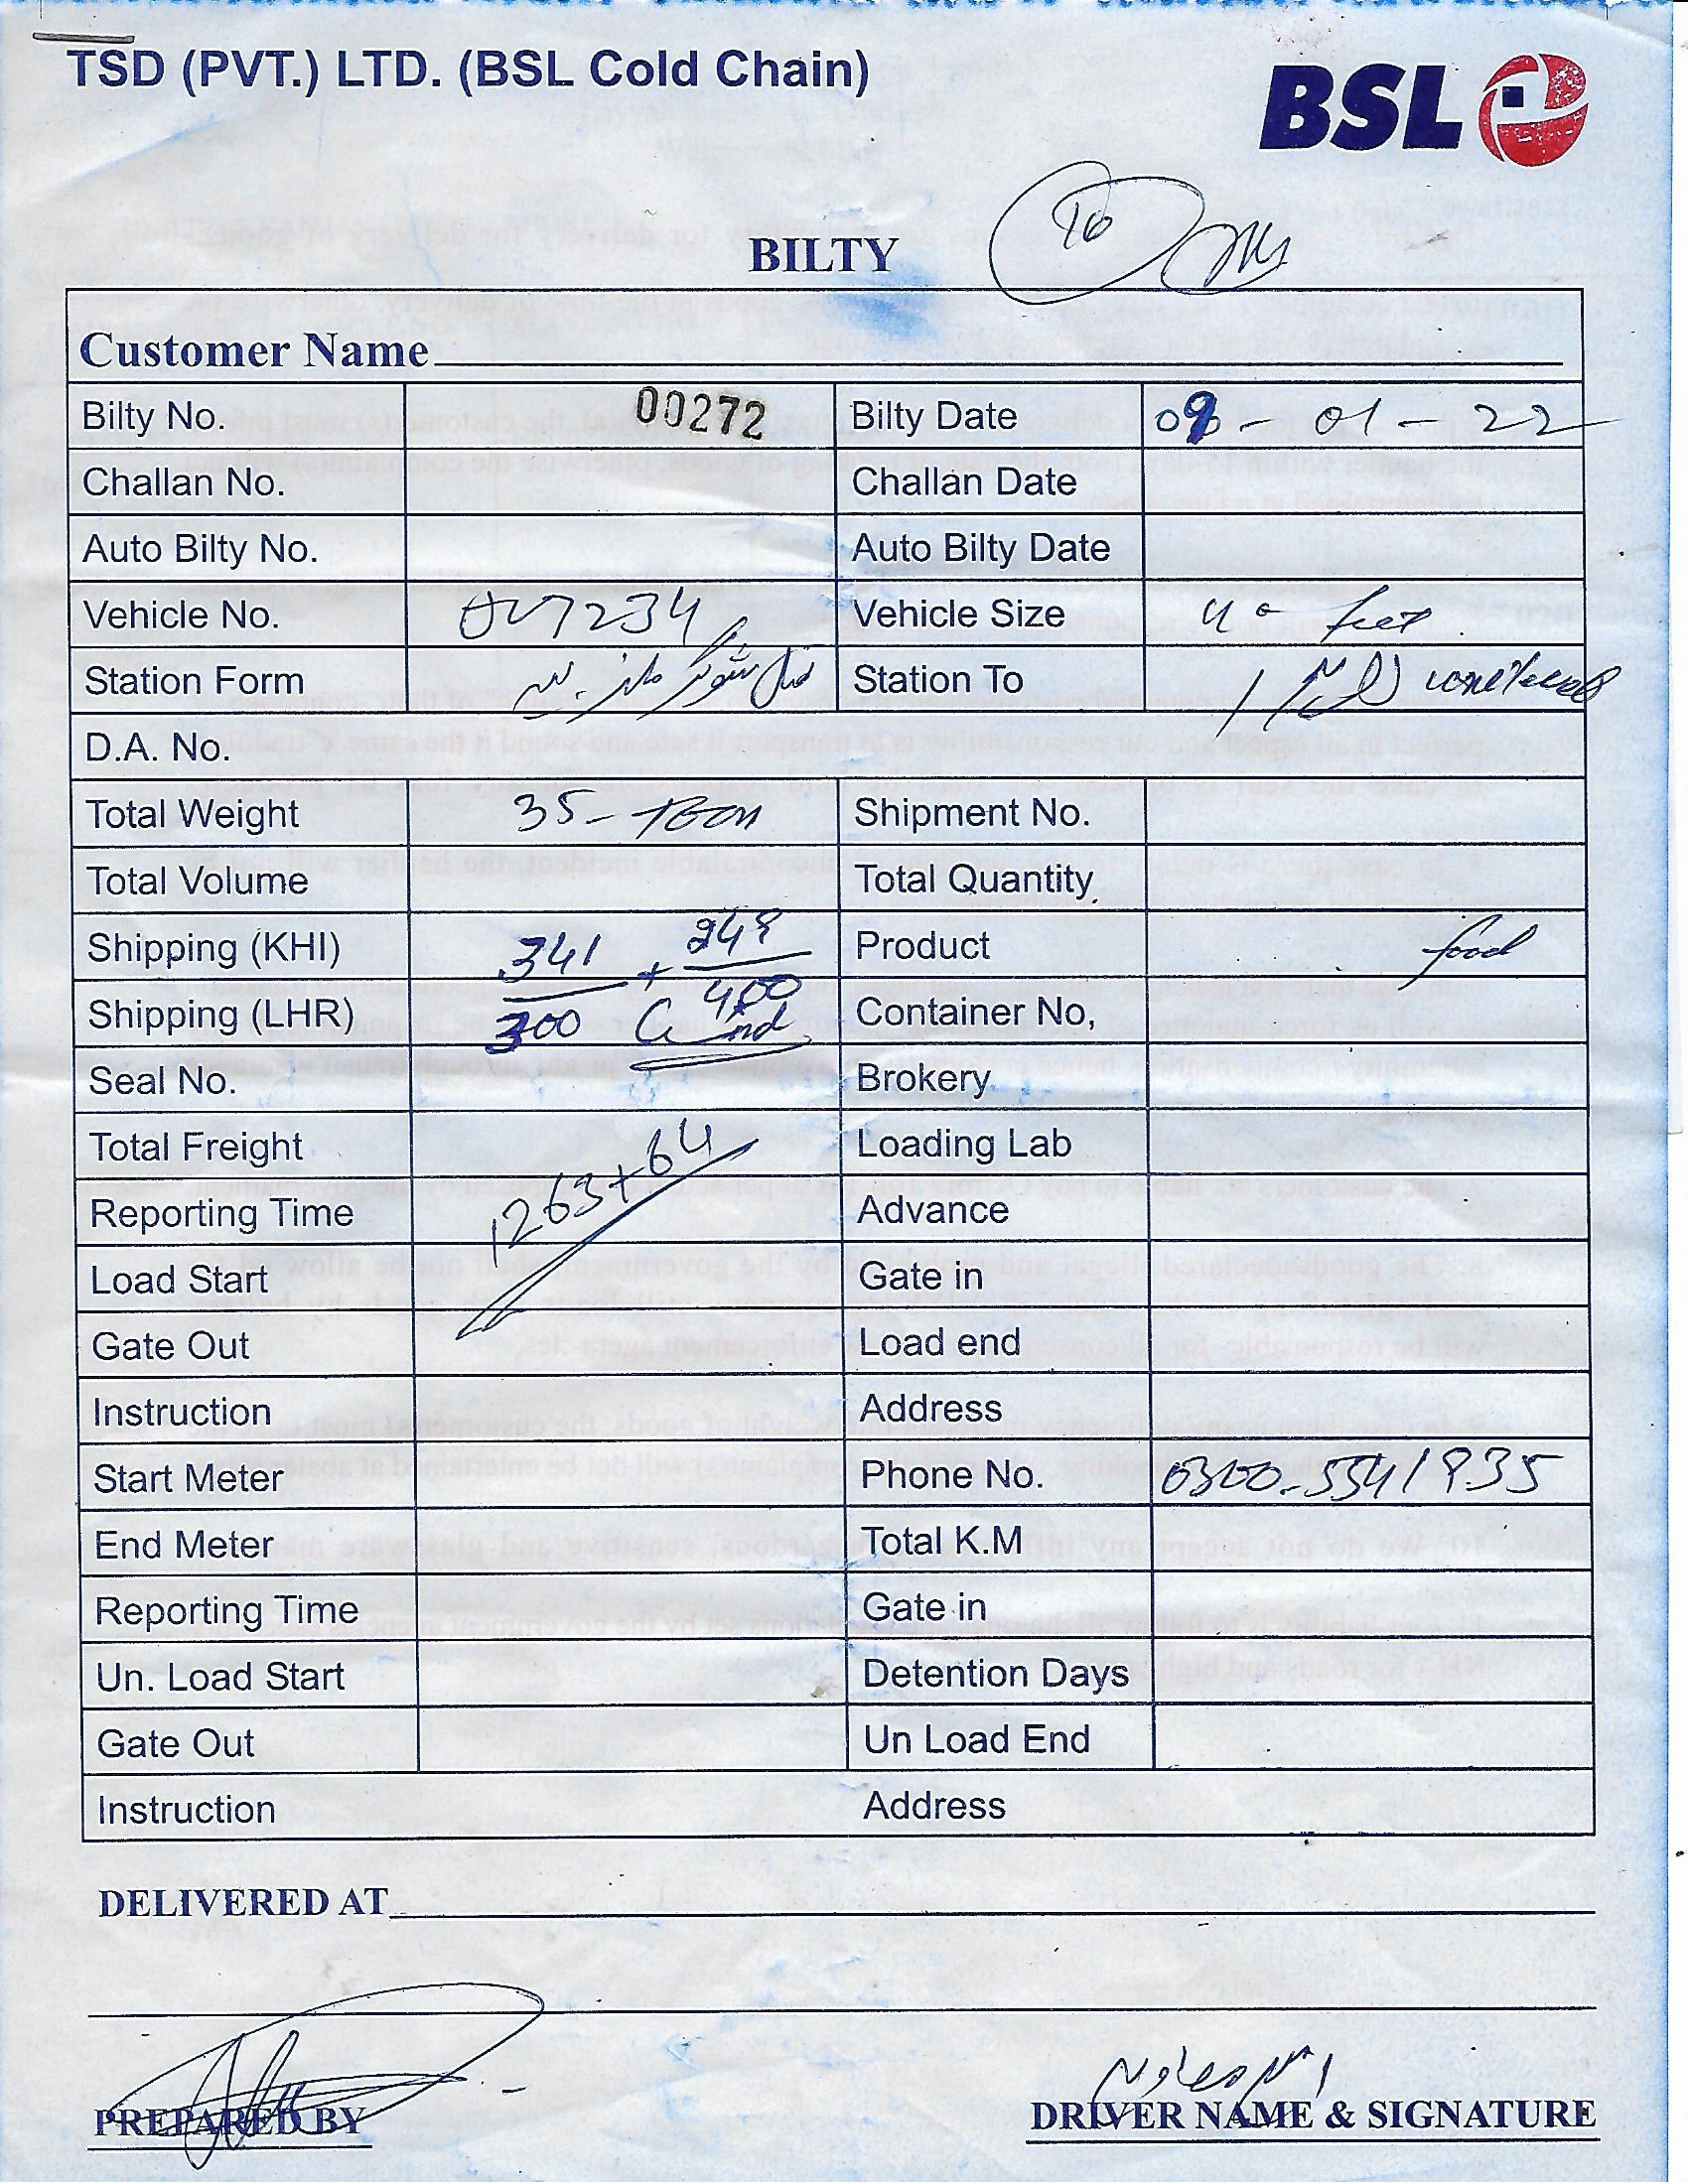 TSD (PVT.) LTD. (BSL Cold Chain)
BSL
To
BILTY
Customer Name
Bilty No. 00272 Bilty Date 09-01-22
Challan No. Challan Date
Auto Bilty No. Auto Bilty Date
Vehicle No. 7234 Vehicle Size 40 feet
Station Form Station To
D.A. No.
Total Weight 35-Toon Shipment No.
Total Volume Total Quantity
Shipping (KHI) 341 + 249 Product food
Shipping (LHR) 300 400 Container No,
Seal No. Brokery
Total Freight Loading Lab
1263+64
Reporting Time Advance
Load Start Gate in
Gate Out Load end
Instruction Address
Start Meter Phone No. 0300-5541935
End Meter Total K.M
Reporting Time Gate in
Un. Load Start Detention Days
Gate Out Un Load End
Instruction Address
DELIVERED AT
PREPARED BY DRIVER NAME & SIGNATURE